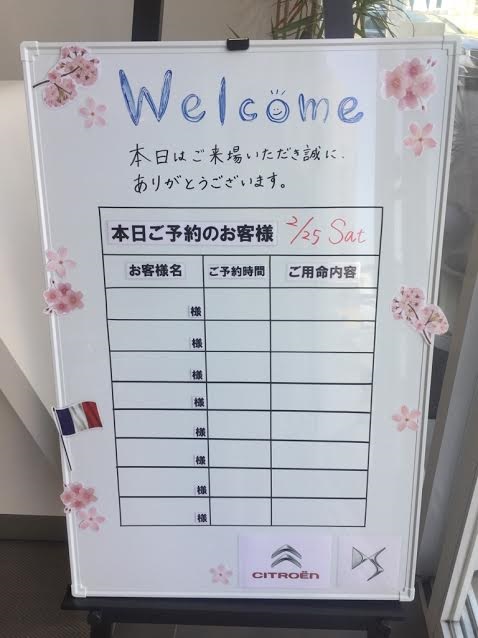 Welcome
本日はご来場いただき誠に、
ありがとうございます。
本日ご予約のお客様 2/25 Sat
お客様名 ご予約時間 ご用命内容
様
様
様
様
様
様
様
様
CITROËN DS